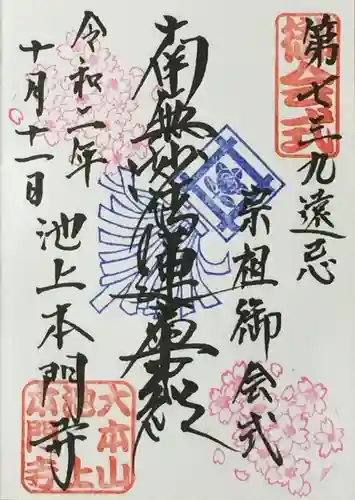 第七三九遠忌
宗祖御会式
南無妙法蓮華経
令和二年
十月十一日
池上本門寺
御会式
大本山
池上
本門寺